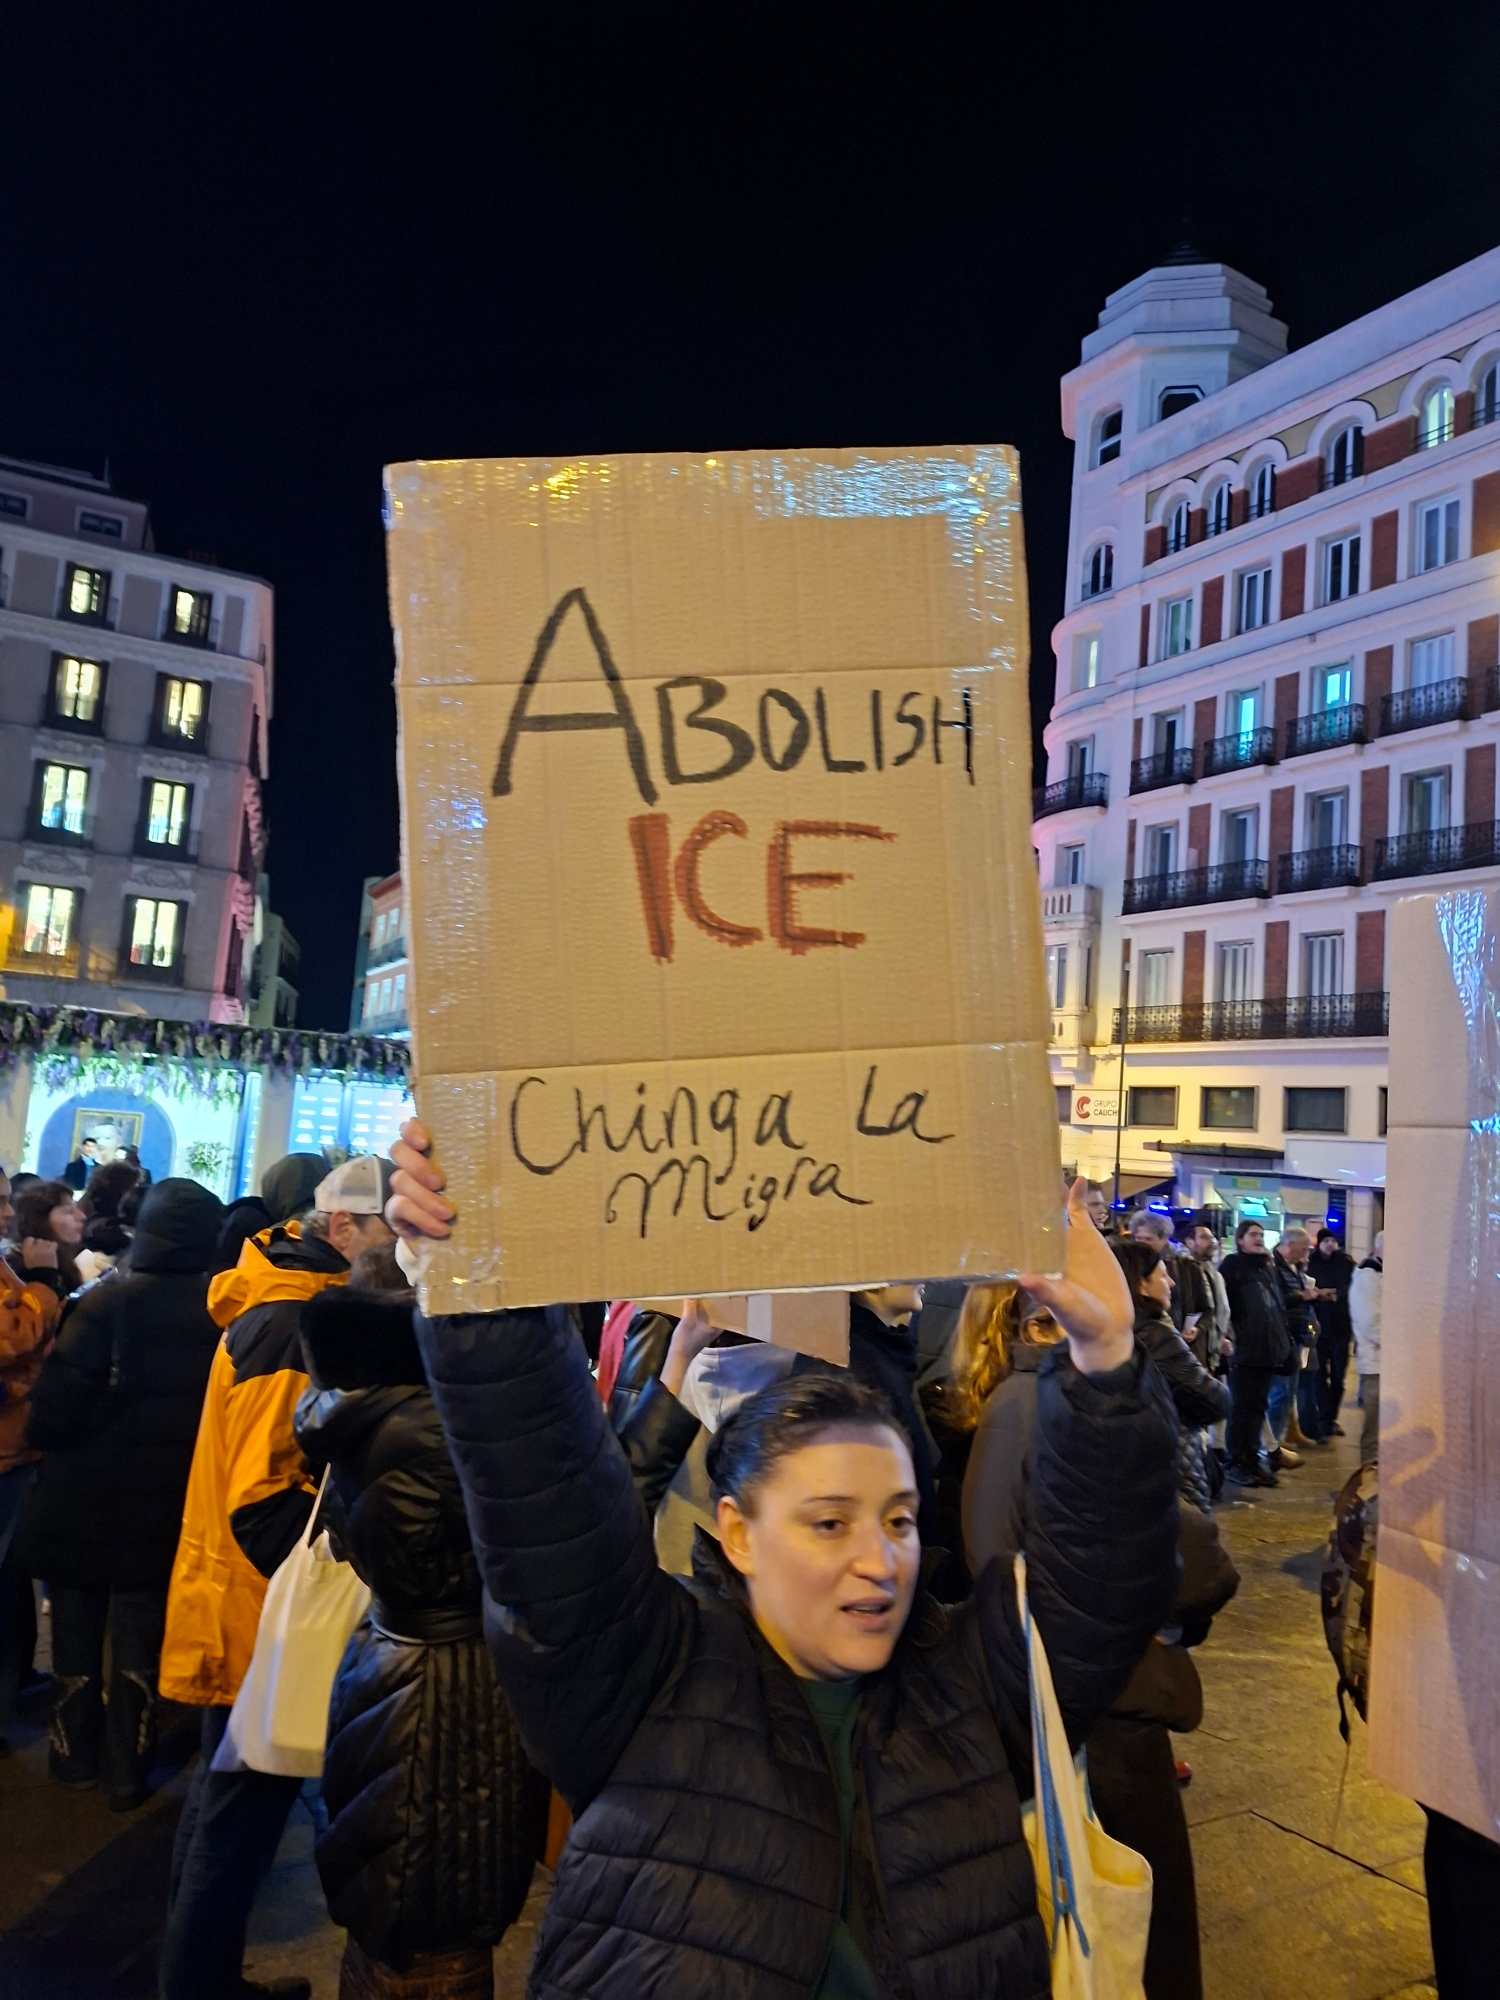 ABOLISH
ICE
Chinga La
Migra
GRUPO
CAUCH